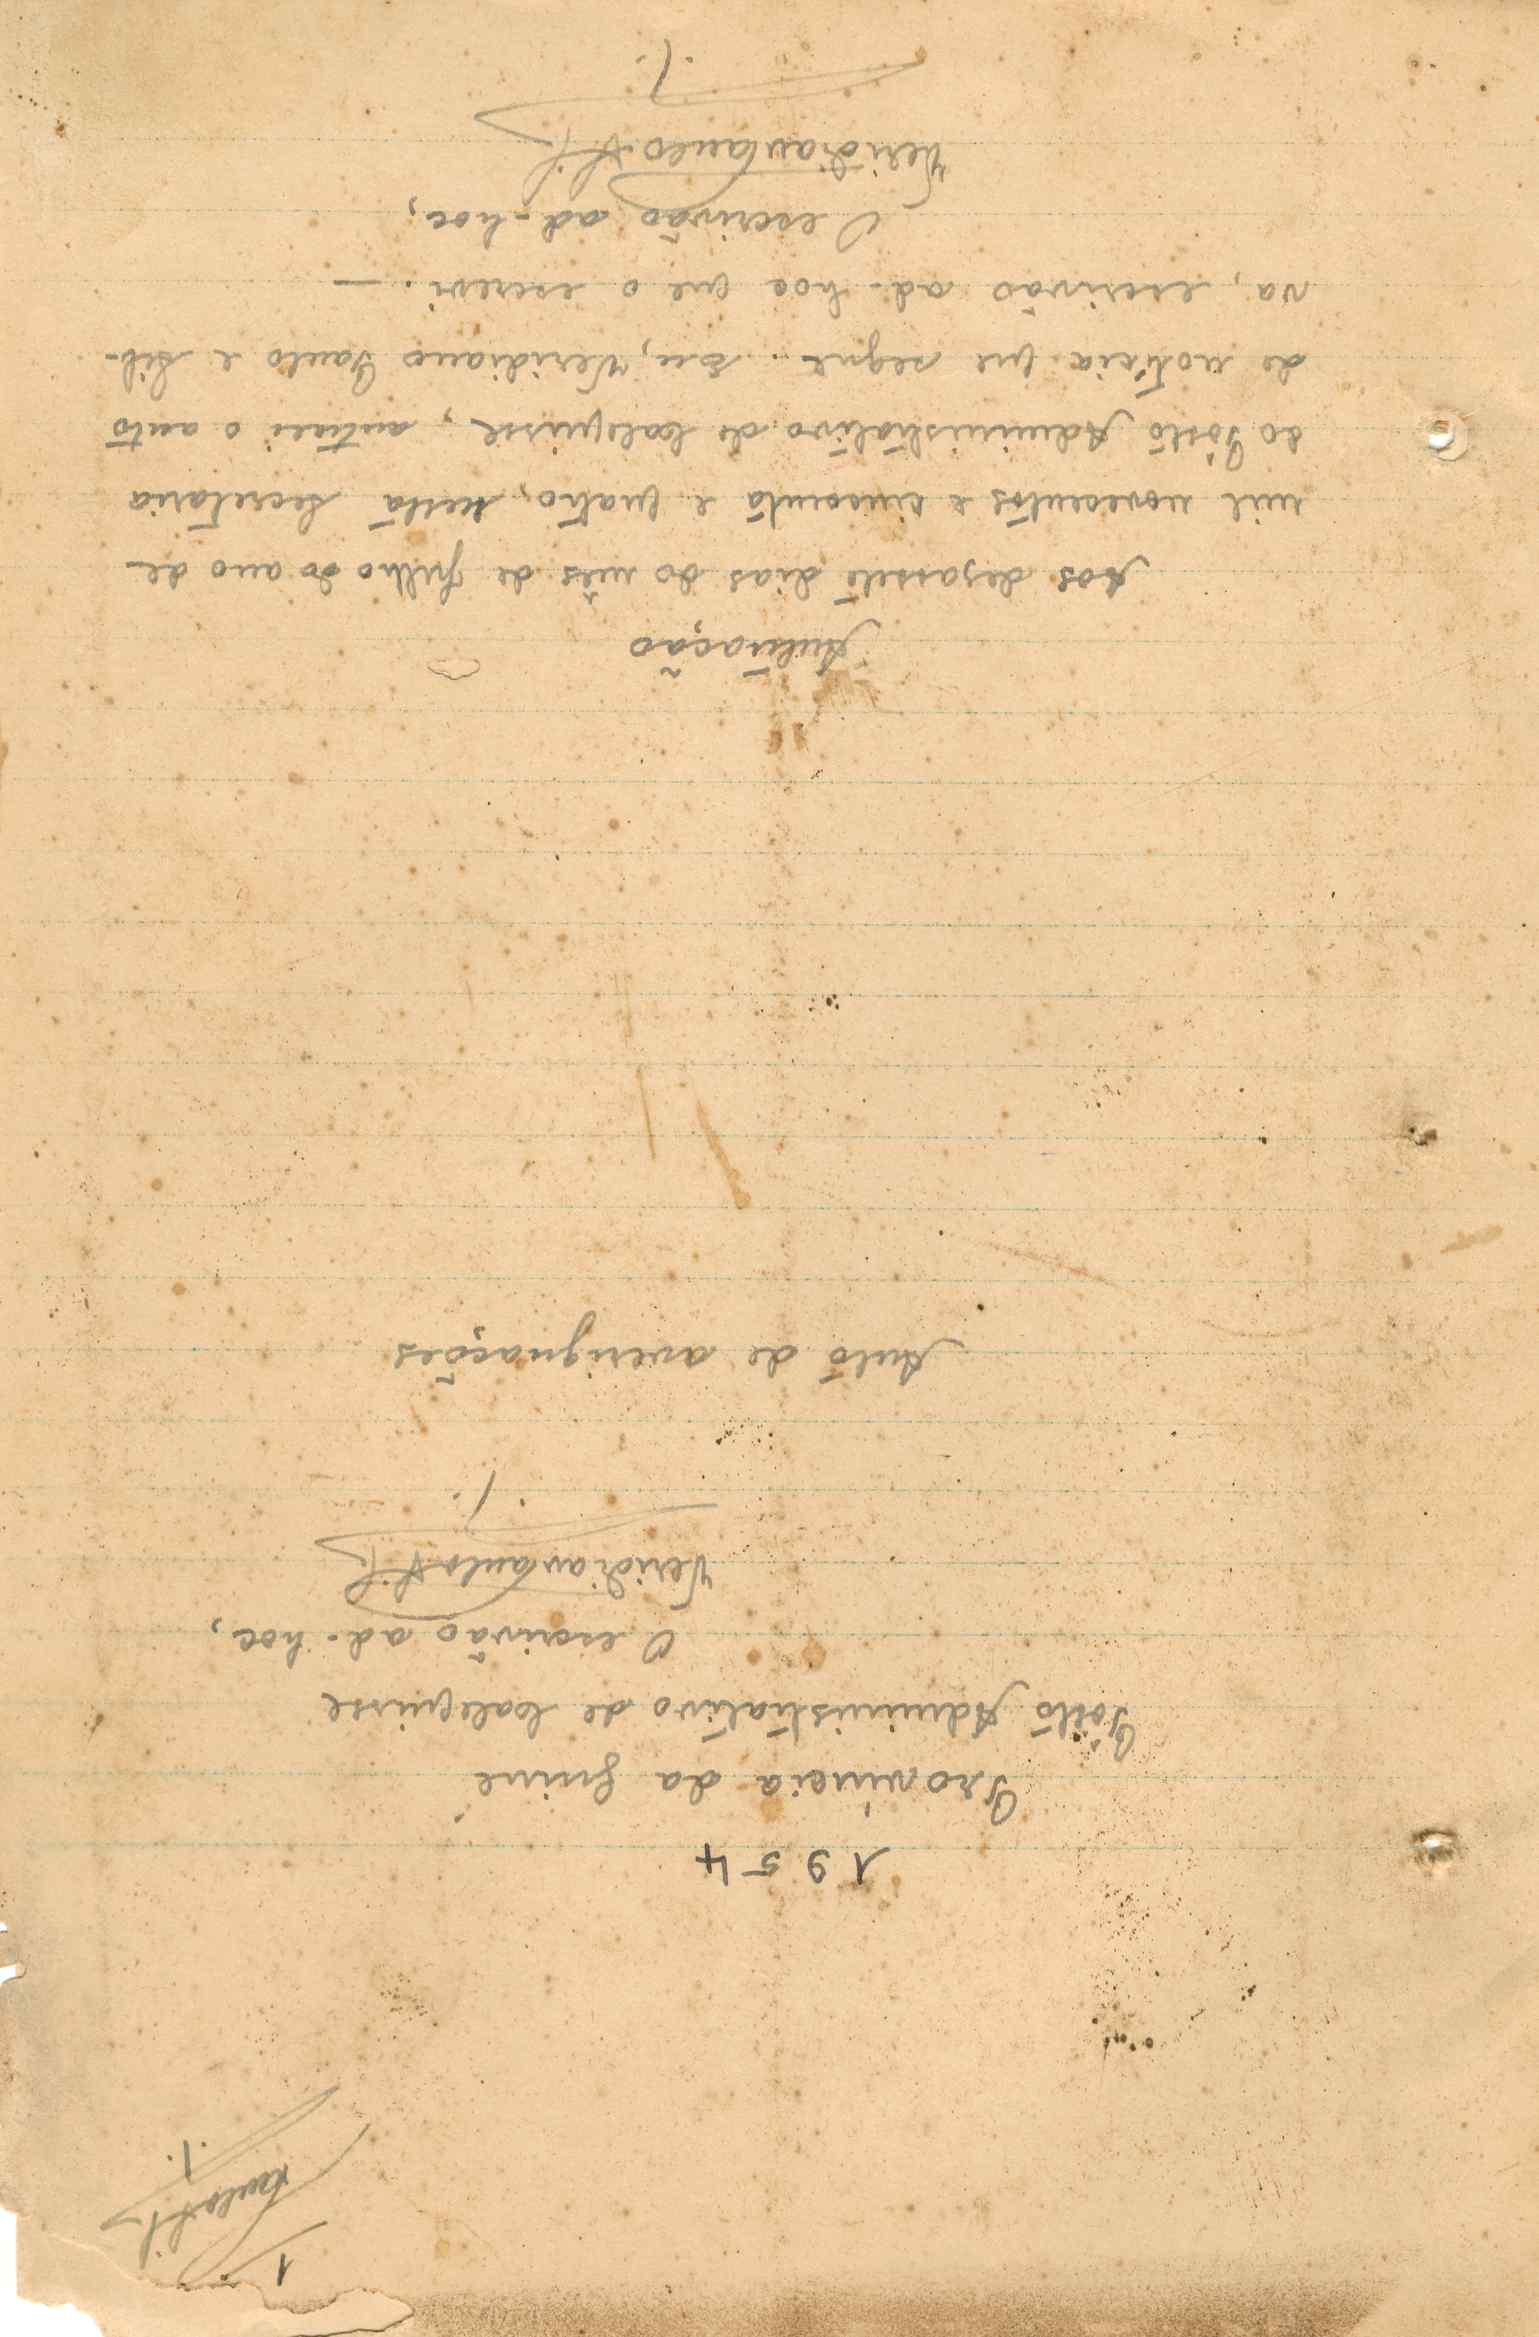 1
Paulo Sil
1954
Província da Guiné
Pôsto Administrativo de Calequisse
O escrivão ad-hoc,
Veridiano Paulo Sil
Auto de averiguações
Autuação
Aos dezassete dias do mês de julho do ano de
mil novecentos e cincoenta e quatro, nesta secretaria
do Pôsto Administrativo de Calequisse, autuei o auto
de notícia que segue. Eu, Veridiano Paulo e Sil-
va, escrivão ad-hoc que o escrevi. —
O escrivão ad-hoc,
Veridiano Paulo Sil